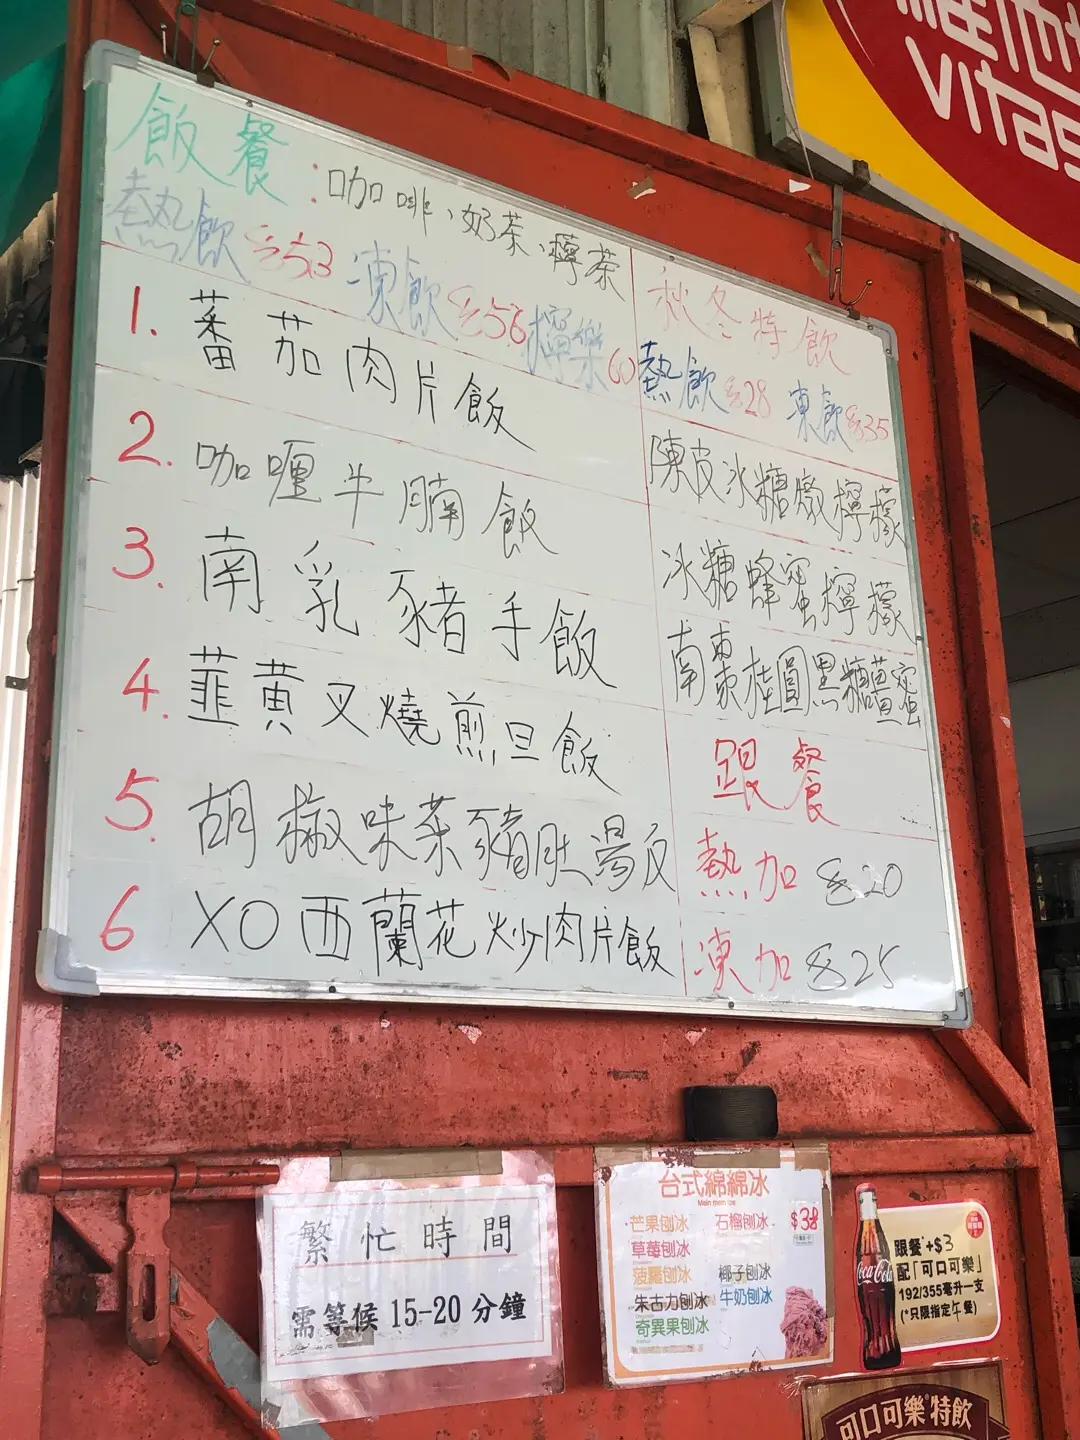 飯餐：咖啡、奶茶、檸茶
熱飲$53 凍飲$56 檸樂60
1. 蕃茄肉片飯
2. 咖喱牛腩飯
3. 南乳豬手飯
4. 韮黄叉燒煎旦飯
5. 胡椒味菜豬肚湯反
6 XO西蘭花炒肉片飯
秋冬特飲
熱飲$28 凍飲$35
陳皮冰糖燉檸檬
冰糖蜂蜜檸檬
南棗桂圓黑糖薑蜜
跟餐
熱加$20
凍加$25
vitas
繁忙時間
需等候 15-20 分鐘
台式綿綿冰
芒果刨冰 石榴刨冰 $38
草莓刨冰
菠蘿刨冰 椰子刨冰
朱古力刨冰 牛奶刨冰
奇異果刨冰
Coca-Cola
跟餐+$3
配「可口可樂」
192/355毫升一支
(*只限指定午餐)
可口可樂特飲